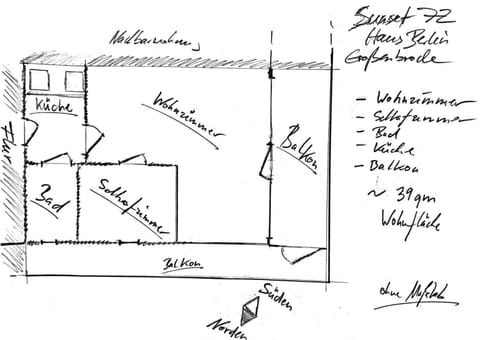 Nachbarwohnung
Sunset 72
Haus Berlin
Großenbrode
Küche
Wohnzimmer
Balkon
Flur
Bad
Schlafzimmer
Balkon
Süden
Norden
– Wohnzimmer
– Schlafzimmer
– Bad
– Küche
– Balkon
~ 39 qm
Wohnfläche
ohne Maßstab